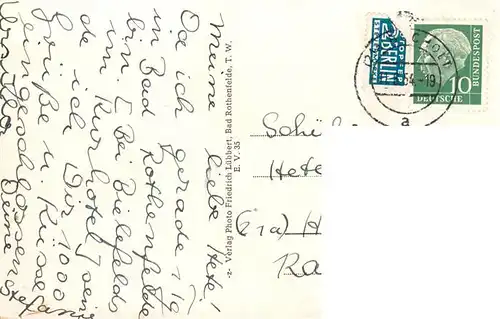 Meine liebe Hete!
Da ich gerade 19
in Bad Rothenfelde
bin, (Bei Bielefeld)
im Kurhotel, sende
ich Dir 1000
Grüße u. Küsse
eingeschlossen
Deine Stefani
-z- Verlag Photo Friedrich Lübbert, Bad Rothenfelde, T. W.
E. V. 35
NOTOPFER
2 BERLIN
STEUERMARKE
54.-19
a
10
DEUTSCHE
BUNDESPOST
Schü
Hete
H
Ra